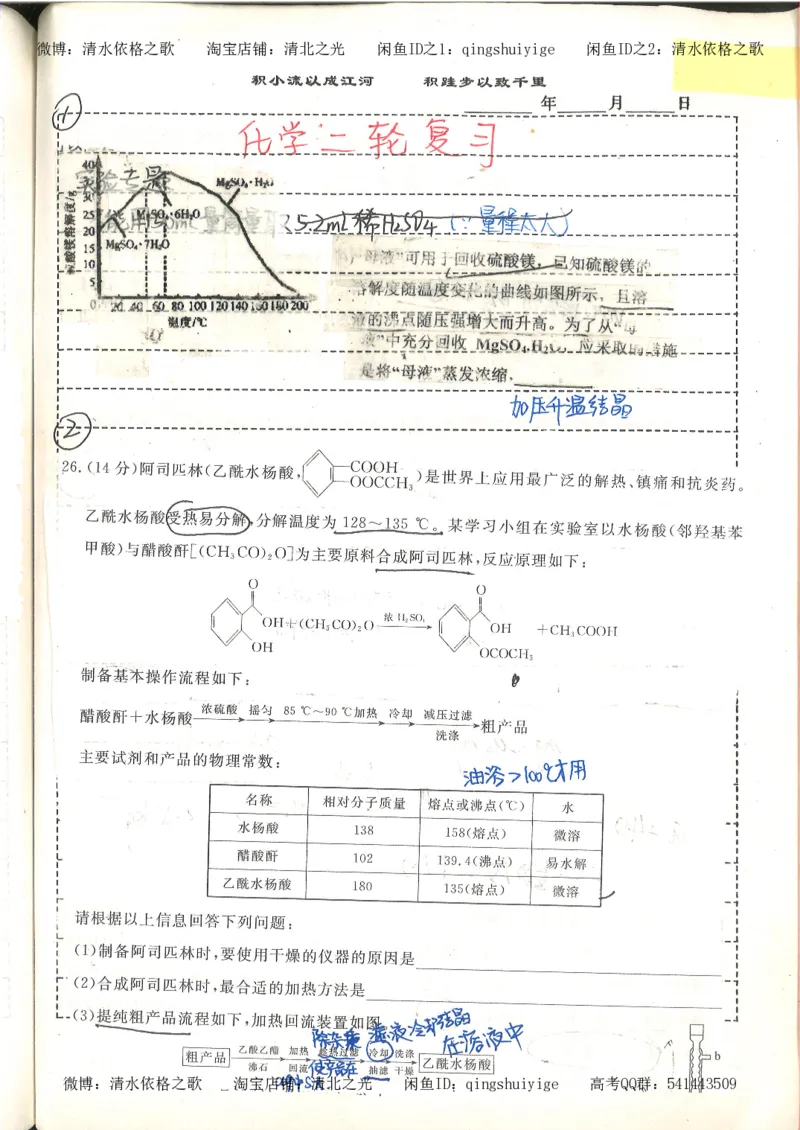 微博：清水依格之歌 淘宝店铺：清北之光 闲鱼ID之1：qingshuiyige 闲鱼ID之2：清水依格之歌
积小流以成江河 积跬步以致千里
年 月 日
1
化学二轮复习
40
35
30
25
20
15
10
5
0
硫酸镁溶解度/g
MgSO₄·H₂O
MgSO₄·6H₂O
MgSO₄·7H₂O
20 40 60 80 100 120 140 160 180 200
温度/℃
5.2mL稀H₂SO₄（∵量程太大）
母液”可用于回收硫酸镁，已知硫酸镁的
溶解度随温度变化的曲线如图所示，且溶
液的沸点随压强增大而升高。为了从“母
液”中充分回收 MgSO₄·H₂O，应采取的措施
是将“母液”蒸发浓缩，
加压升温结晶
2
26.(14分)阿司匹林(乙酰水杨酸, COOH OOCCH₃ )是世界上应用最广泛的解热、镇痛和抗炎药。
乙酰水杨酸受热易分解,分解温度为 128～135 ℃。某学习小组在实验室以水杨酸(邻羟基苯
甲酸)与醋酸酐[(CH₃CO)₂O]为主要原料合成阿司匹林,反应原理如下:
O OH OH +(CH₃CO)₂O 浓 H₂SO₄ O OH OCOCH₃ +CH₃COOH
制备基本操作流程如下:
醋酸酐+水杨酸 浓硫酸 摇匀 85 ℃～90 ℃加热 冷却 减压过滤 洗涤 粗产品
主要试剂和产品的物理常数:
油浴>100℃才用
名称 相对分子质量 熔点或沸点(℃) 水
水杨酸 138 158(熔点) 微溶
醋酸酐 102 139.4(沸点) 易水解
乙酰水杨酸 180 135(熔点) 微溶
请根据以上信息回答下列问题:
(1)制备阿司匹林时,要使用干燥的仪器的原因是
(2)合成阿司匹林时,最合适的加热方法是
(3)提纯粗产品流程如下,加热回流装置如图
除杂质 滤液冷却结晶
在溶液中
粗产品 乙酸乙酯 沸石 加热 回流 趁热过滤 冷却 抽滤 洗涤 干燥 乙酰水杨酸
b
微博：清水依格之歌 淘宝店铺：清北之光 闲鱼ID：qingshuiyige 高考QQ群：541443509